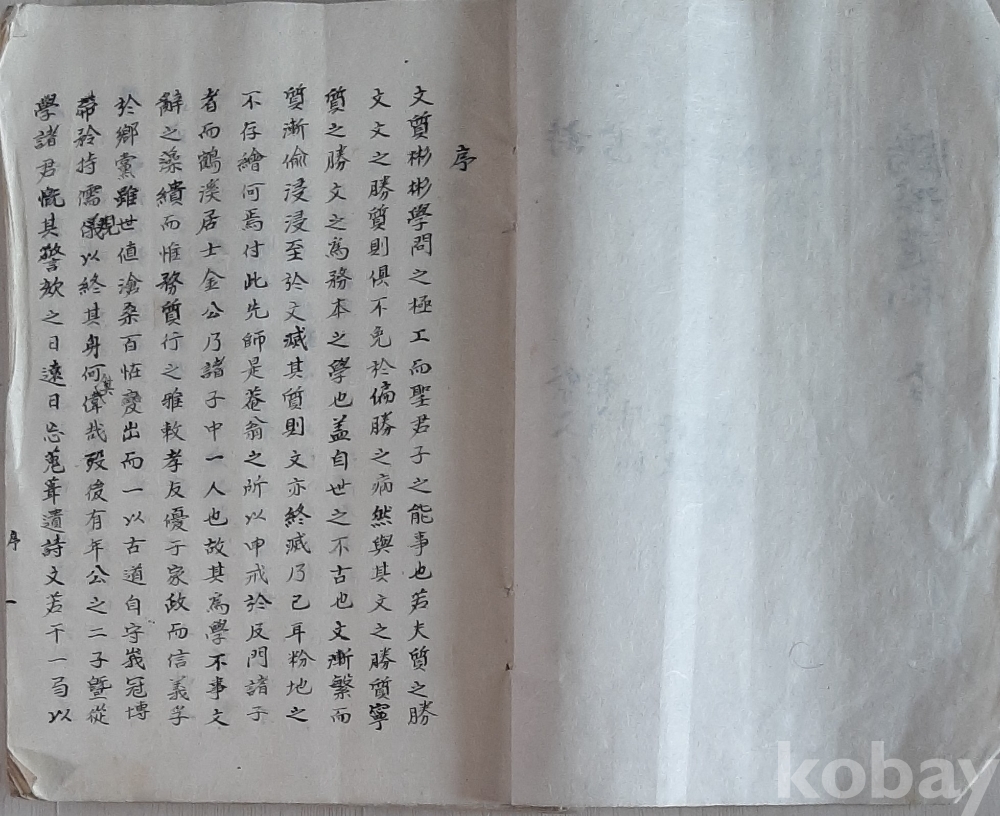 序
文質彬彬學問之極工而聖君子之能事也若夫質之勝
文文之勝質則俱不免於偏勝之病然與其文之勝質寧
質之勝文之爲務本之學也盖自世之不古也文漸繁而
質漸偷浸浸至於文滅其質則文亦終滅乃已耳粉地之
不存繪何焉付此先師是菴翁之所以申戒於及門諸子
者而鶴溪居士金公乃諸子中一人也故其爲學不事文
辭之藻繢而惟務質行之雅敕孝友優于家政而信義孚
於鄉黨雖世值滄桑百恠變出而一以古道自守峩冠博
帶矜持儒儀以終其身何偉哉歿後有年公之二子曁從
規
其
學諸君慨其警欬之日遠日忘蒐葺遺詩文若干一局以
序
一
kobay